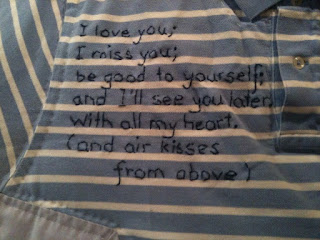 I love you;
I miss you;
be good to yourself;
and I'll see you later
With all my heart.
(and air kisses
from above)